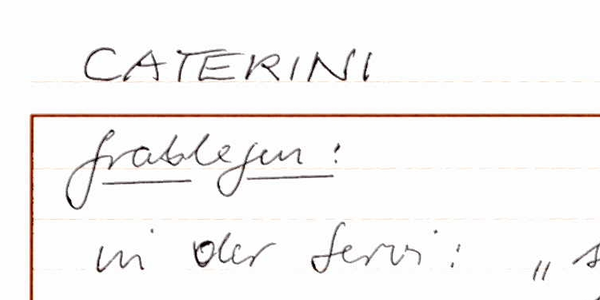 CATERINI
Grablegen:
in der Servi: „ s